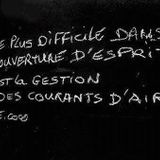 E PLUS DIFFICILE DANS
OUVERTURE D'ESPRIT
ST LA GESTION
DES COURANTS D'AIR